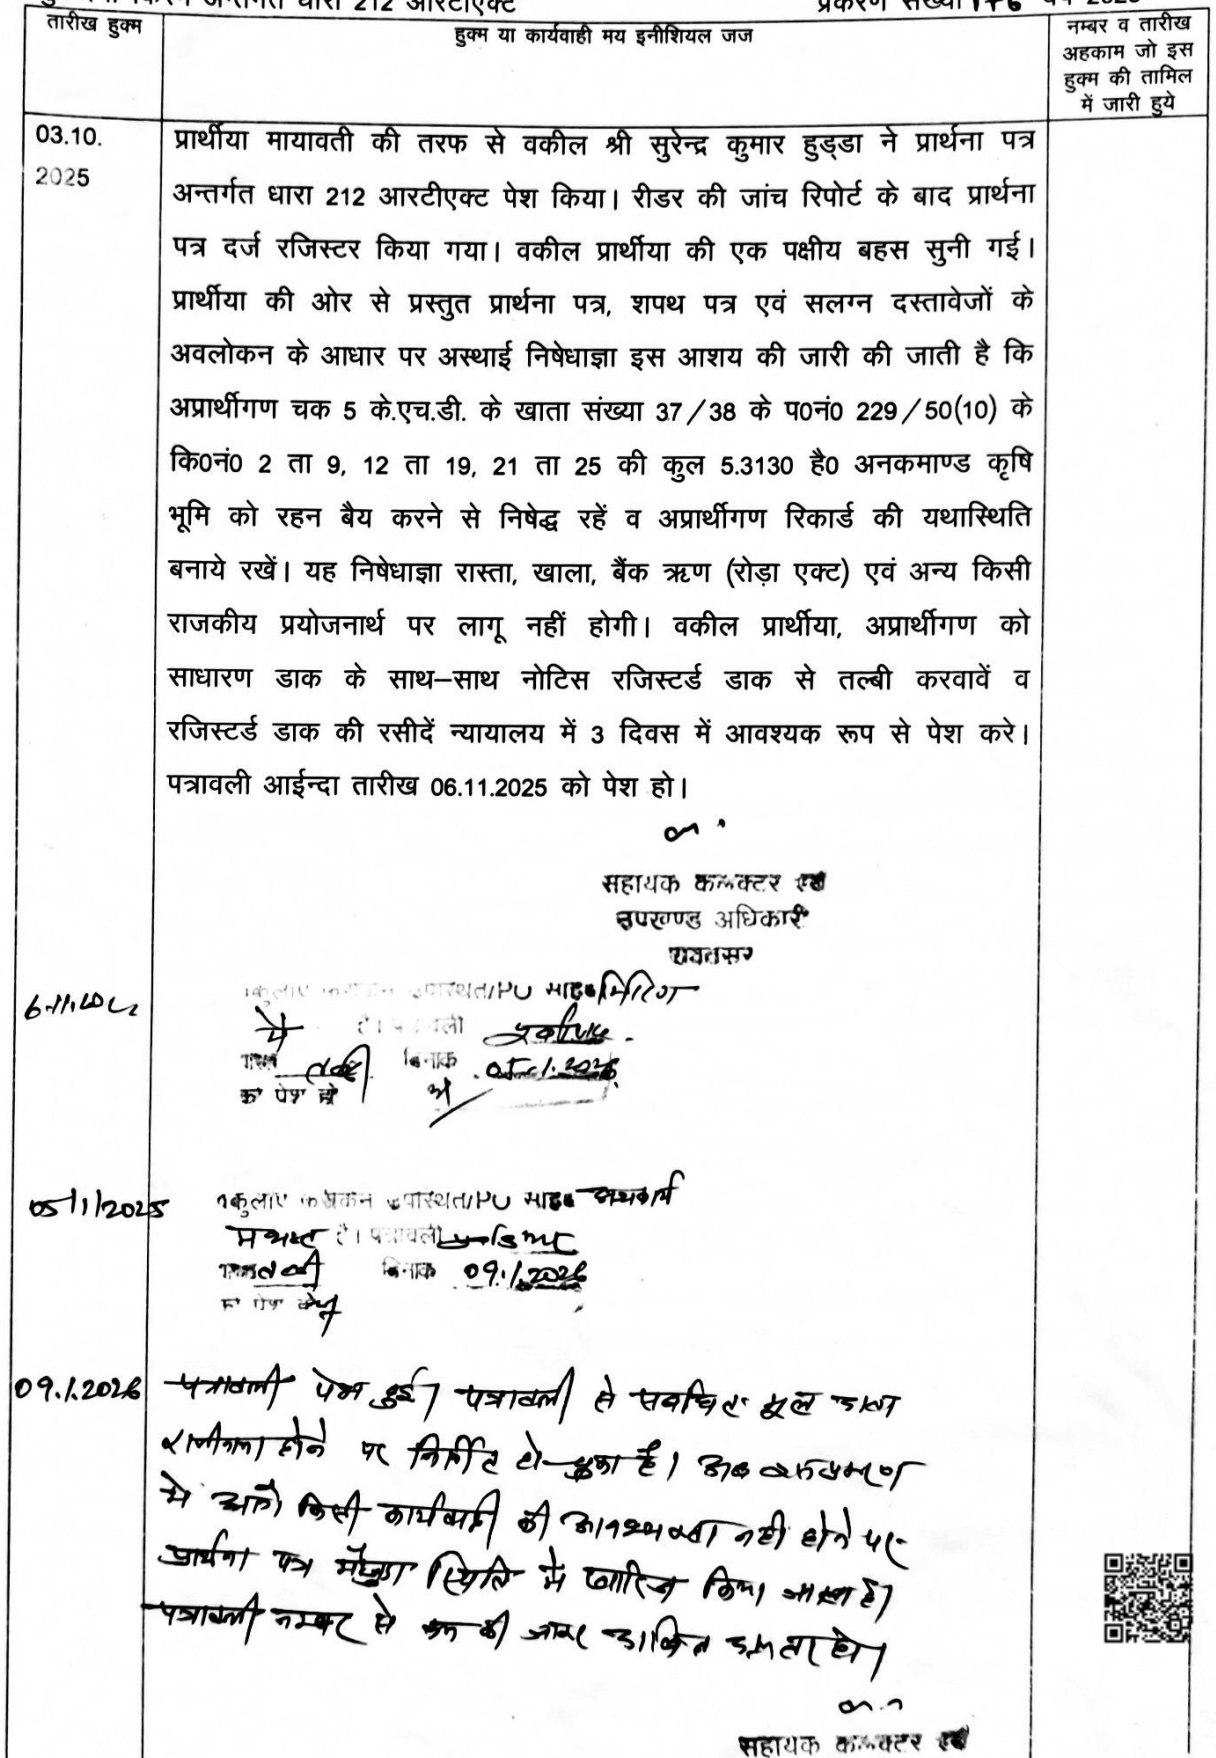 अन्तर्गत धारा 212 आरटीएक्ट प्रकरण संख्या 176
तारीख हुक्म
हुक्म या कार्यवाही मय इनीशियल जज
नम्बर व तारीख
अहकाम जो इस
हुक्म की तामिल
में जारी हुये
03.10.
2025
प्रार्थीया मायावती की तरफ से वकील श्री सुरेन्द्र कुमार हुड्डा ने प्रार्थना पत्र
अन्तर्गत धारा 212 आरटीएक्ट पेश किया। रीडर की जांच रिपोर्ट के बाद प्रार्थना
पत्र दर्ज रजिस्टर किया गया। वकील प्रार्थीया की एक पक्षीय बहस सुनी गई।
प्रार्थीया की ओर से प्रस्तुत प्रार्थना पत्र, शपथ पत्र एवं सलग्न दस्तावेजों के
अवलोकन के आधार पर अस्थाई निषेधाज्ञा इस आशय की जारी की जाती है कि
अप्रार्थीगण चक 5 के.एच.डी. के खाता संख्या 37/38 के प0नं0 229/50(10) के
कि0नं0 2 ता 9, 12 ता 19, 21 ता 25 की कुल 5.3130 है0 अनकमाण्ड कृषि
भूमि को रहन बैय करने से निषेद्ध रहें व अप्रार्थीगण रिकार्ड की यथास्थिति
बनाये रखें। यह निषेधाज्ञा रास्ता, खाला, बैंक ऋण (रोड़ा एक्ट) एवं अन्य किसी
राजकीय प्रयोजनार्थ पर लागू नहीं होगी। वकील प्रार्थीया, अप्रार्थीगण को
साधारण डाक के साथ–साथ नोटिस रजिस्टर्ड डाक से तल्बी करवावें व
रजिस्टर्ड डाक की रसीदें न्यायालय में 3 दिवस में आवश्यक रूप से पेश करे।
पत्रावली आईन्दा तारीख 06.11.2025 को पेश हो।
सहायक कलक्टर एवं
उपखण्ड अधिकारी
रावतसर
उपस्थित/PO साहब मिटिंग
में है। पत्रावली
दिनांक 05.1.2026
को पेश हो
05/1/2025
उपस्थित/PO साहब
है। पत्रावली
दिनांक 09.1.2026
09.1.2026
पत्रावली पेश हुई। पत्रावली से संबंधित मूल वाद
राजीनामा होने पर निर्णित हो चुका है। अब
में आगे किसी कार्यवाही की आवश्यकता नहीं होने पर
प्रार्थना पत्र मौजूदा स्थिति में खारिज किया जाता है।
पत्रावली नम्बर से कम की जाकर दाखिल दफ्तर हो।
सहायक कलक्टर एवं